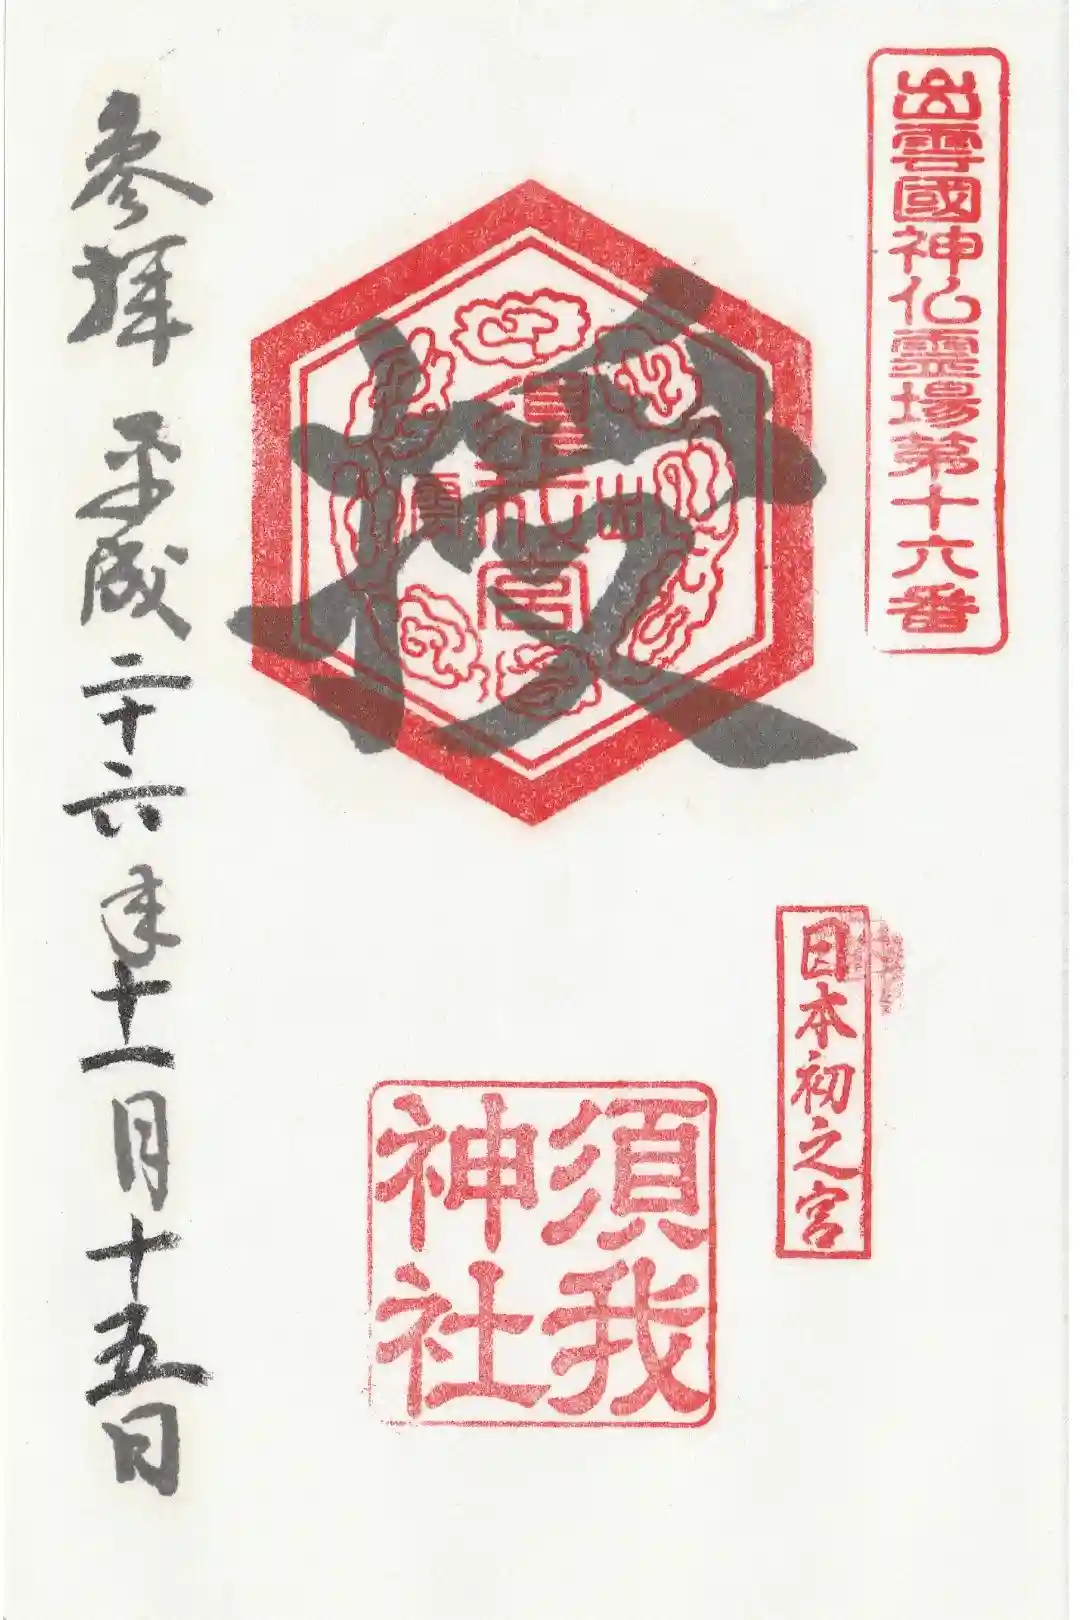 出雲國神仏霊場第十六番
授
日本初之宮
須我
神社
参拝 平成二十六年十一月十五日